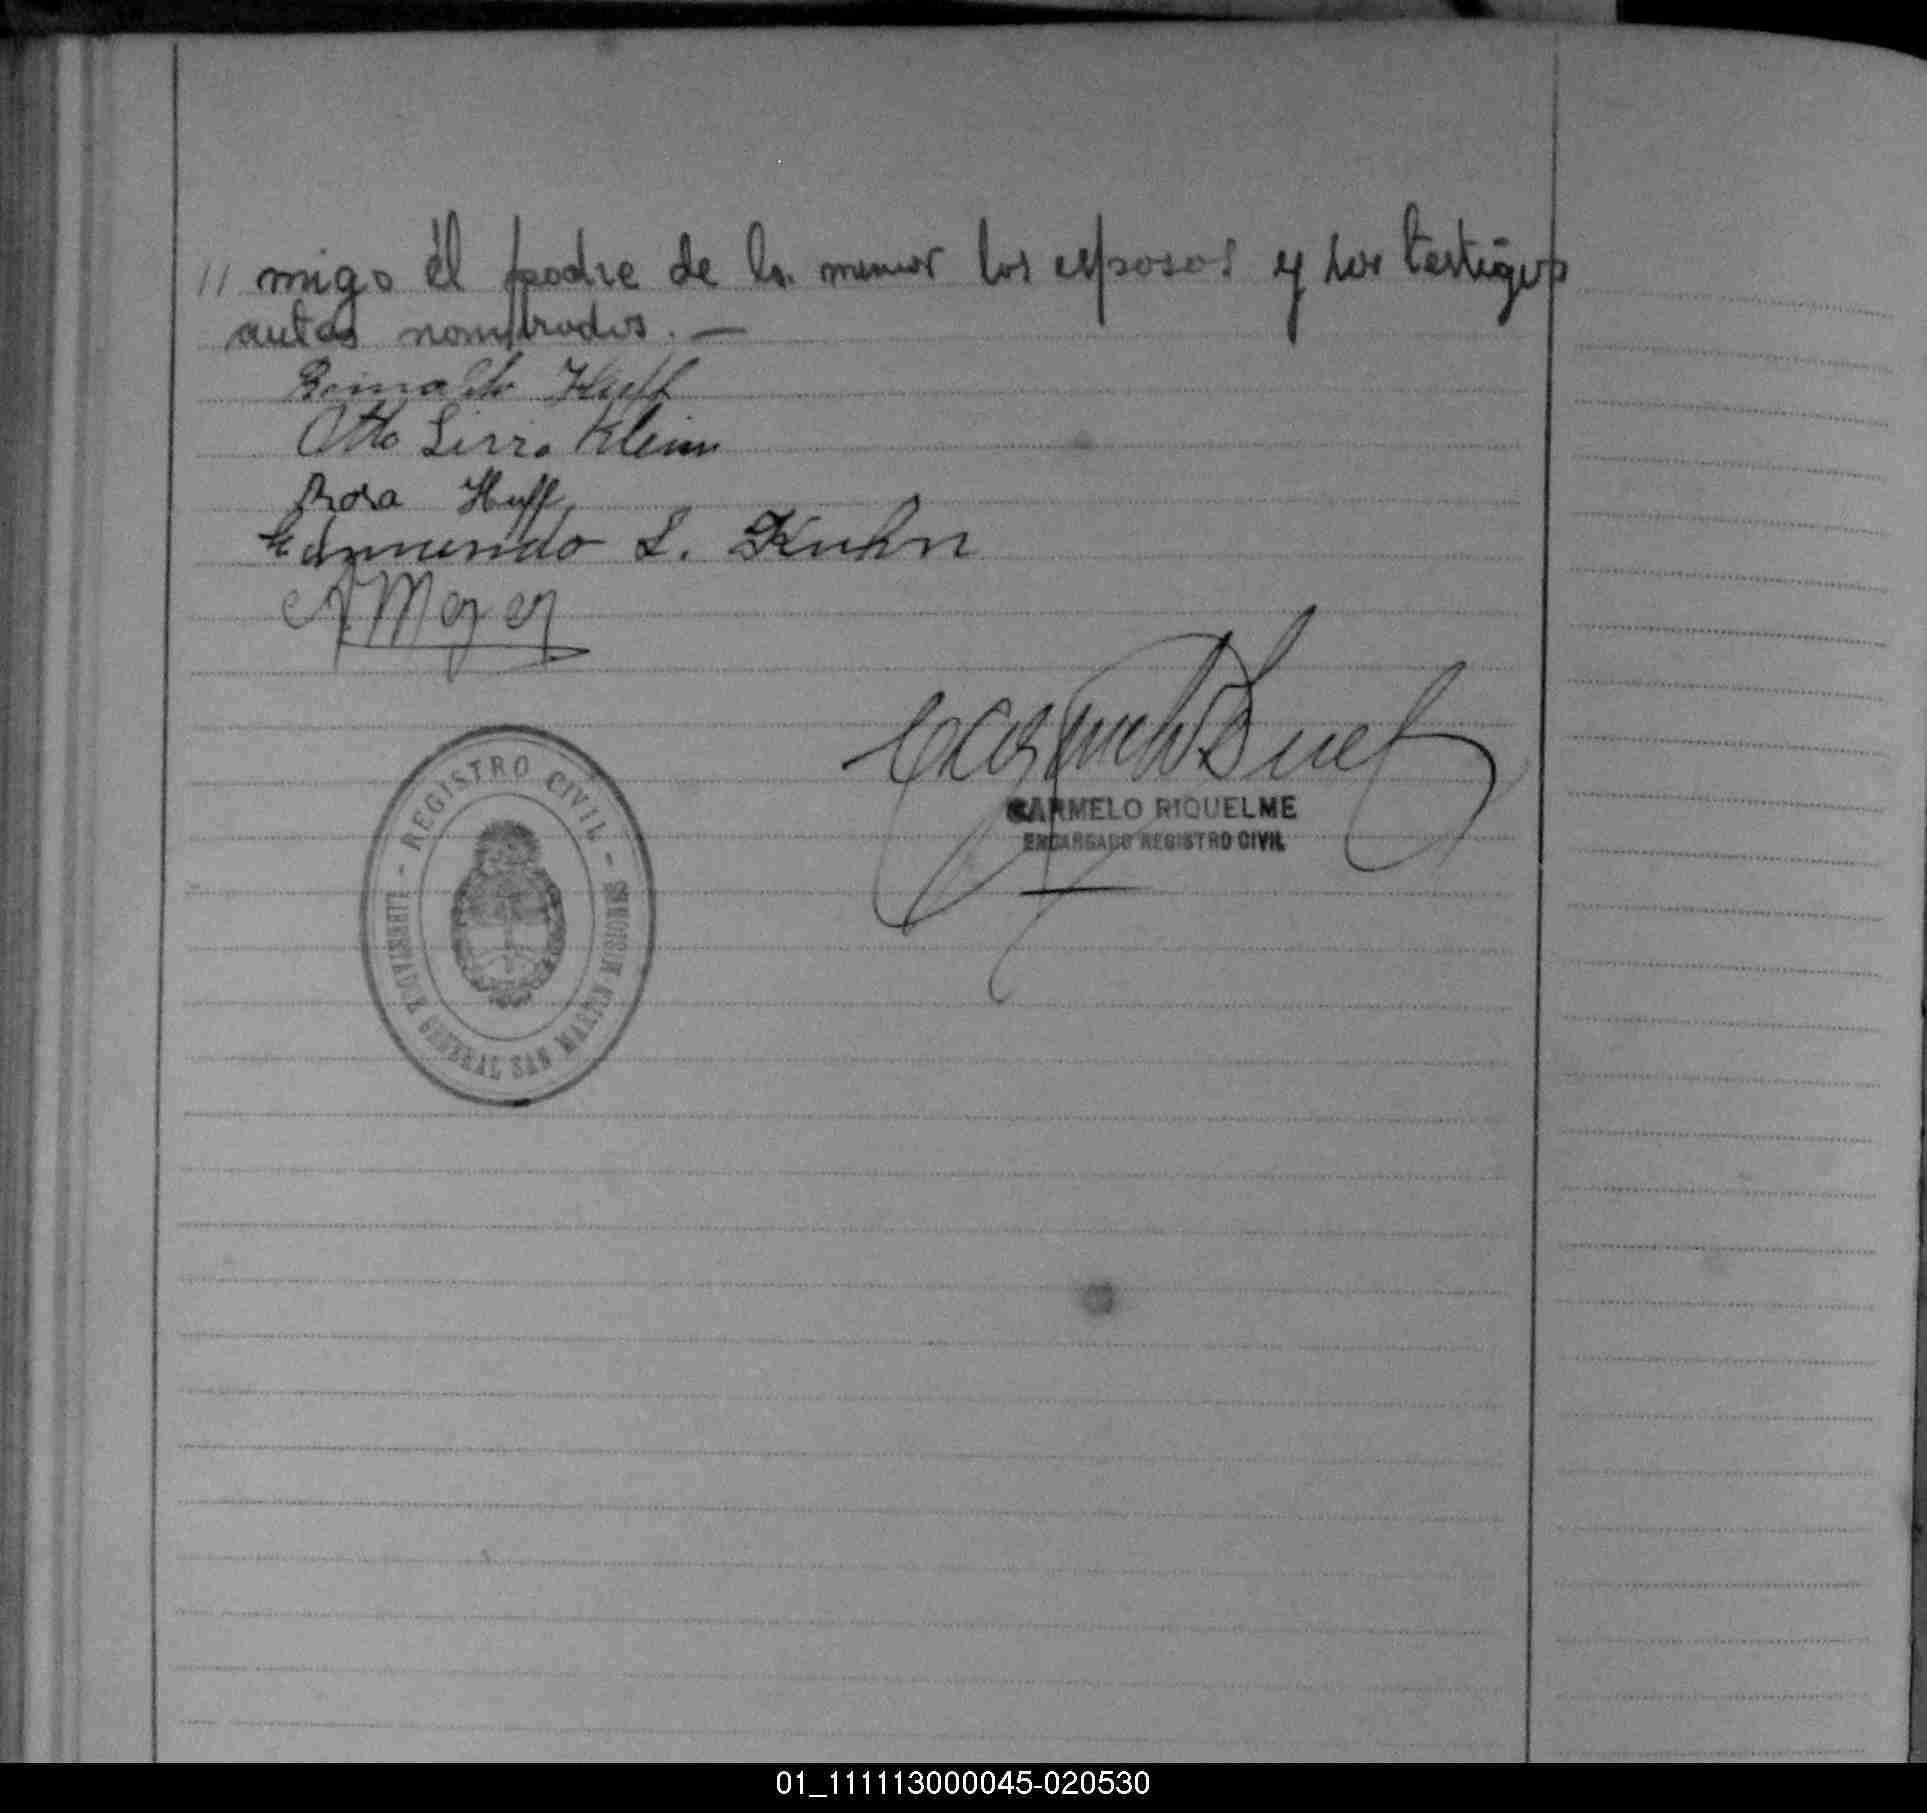 // migo él padre de la menor los esposos y los testigos
antes nombrados. —
Reinaldo Huff
Otto Lirio Klein
Rosa Huff
Edmundo L. Kuhn
REGISTRO CIVIL
GENERAL SAN MARTIN MISIONES
CARMELO RIQUELME
ENCARGADO REGISTRO CIVIL
01_111113000045-020530